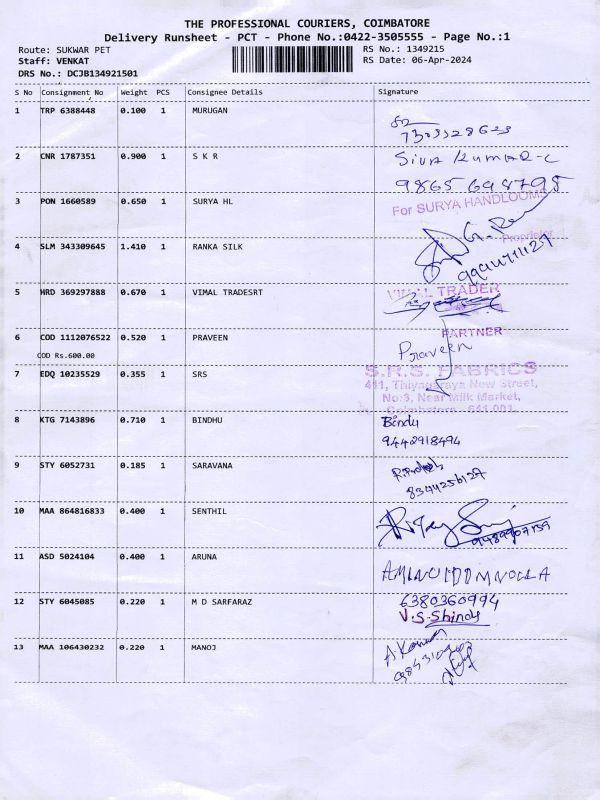 THE PROFESSIONAL COURIERS, COIMBATORE
Delivery Runsheet - PCT - Phone No.:0422-3505555 - Page No.:1
Route: SUKWAR PET RS No.: 1349215
Staff: VENKAT RS Date: 06-Apr-2024
DRS No.: DCJB134921501
S No Consignment No Weight PCS Consignee Details Signature
1 TRP 6388448 0.100 1 MURUGAN
2 CNR 1787351 0.900 1 S K R Siva Kumar-C
9865698795
3 PON 1660589 0.650 1 SURYA HL For SURYA HANDLOOMS
Proprietor
4 SLM 343309645 1.410 1 RANKA SILK
5 HRD 369297888 0.670 1 VIMAL TRADESRT VIMAL TRADER
PARTNER
6 COD 1112076522 0.520 1 PRAVEEN Praveen
COD Rs.600.00
7 EDQ 10235529 0.355 1 SRS S.R.S. FABRICS
411, Thiyagaraya New Street,
No:3, Near Milk Market,
Coimbatore - 641 001
8 KTG 7143896 0.710 1 BINDHU Bindu
9442918494
9 STY 6052731 0.185 1 SARAVANA
8344256127
10 MAA 864816833 0.400 1 SENTHIL
9489907159
11 ASD 5024104 0.400 1 ARUNA
12 STY 6045085 0.220 1 M D SARFARAZ 6380360994
V.S.Shindy
13 MAA 106430232 0.220 1 MANOJ